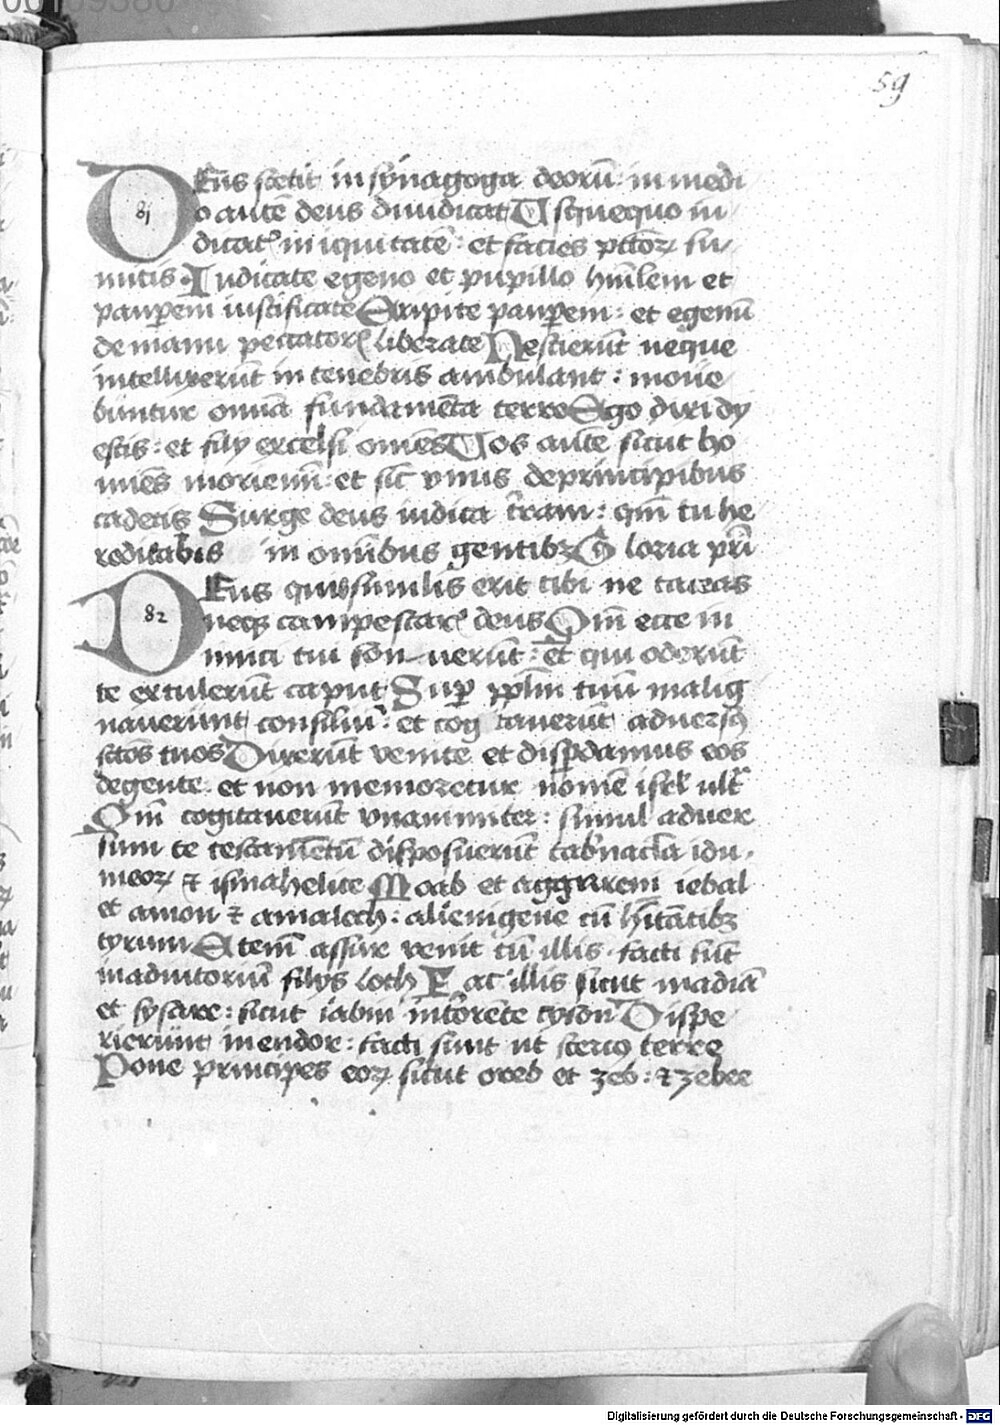 59
DEus stetit in synagoga deorū: in medi
81
o autē deus diiudicat Usquequo iu
dicatꝭ iniquitatē: et facies pctōꝝ su
mitis. Iudicate egeno et pupillo hūilem et
paupem iustificate Eripite paupem: et egenū
de manu peccatorꝭ liberate Nescierūt neque
intellixerūt in tenebris ambulant: moue
buntur omīa fundamēta terre Ego dixi dy
estis: et filij excelsi omēs Uos autē sicut ho
mīes moriemī: et sic vnus de principibus
cadetis Surge deus iudica t̄ram: qm̄ tu he
reditabis in omībus gentibꝫ Gloria pri
DEus quis similis erit tibi ne taceas
82
neqꝫ compescarꝭ deus Qm̄ ecce in
imici tui son uerūt: et qui oderūt
te extulerūt caput Sup pplm̄ tuū malig
nauerunt consiliū: et cog tauerūt aduersꝰ
sctōs tuos Dixerūt venite et dispdamus eos
de gente: et non memoretur nomē isrl ultͬ
Qm̄ cogitauerūt vnanimiter: simul aduer
sum te testamētū disposuerūt tabnacla idu
meoꝝ ⁊ ismahelite Moab et aggareni iebal
et amon ⁊ amalech: alienigene cū hītātibꝫ
tyrum Etem̄ assur venit cū illis. facti sūt
in adiutoriū filijs loth Fac illis sicut madiā
et sysare: sicut iabin in torēte cyson Dispe
rierunt in endor: facti sunt ut stercꝰ terre
Pone principes eoꝝ sicut oreb et zeb: ⁊ zebee
Digitalisierung gefördert durch die Deutsche Forschungsgemeinschaft - DFG